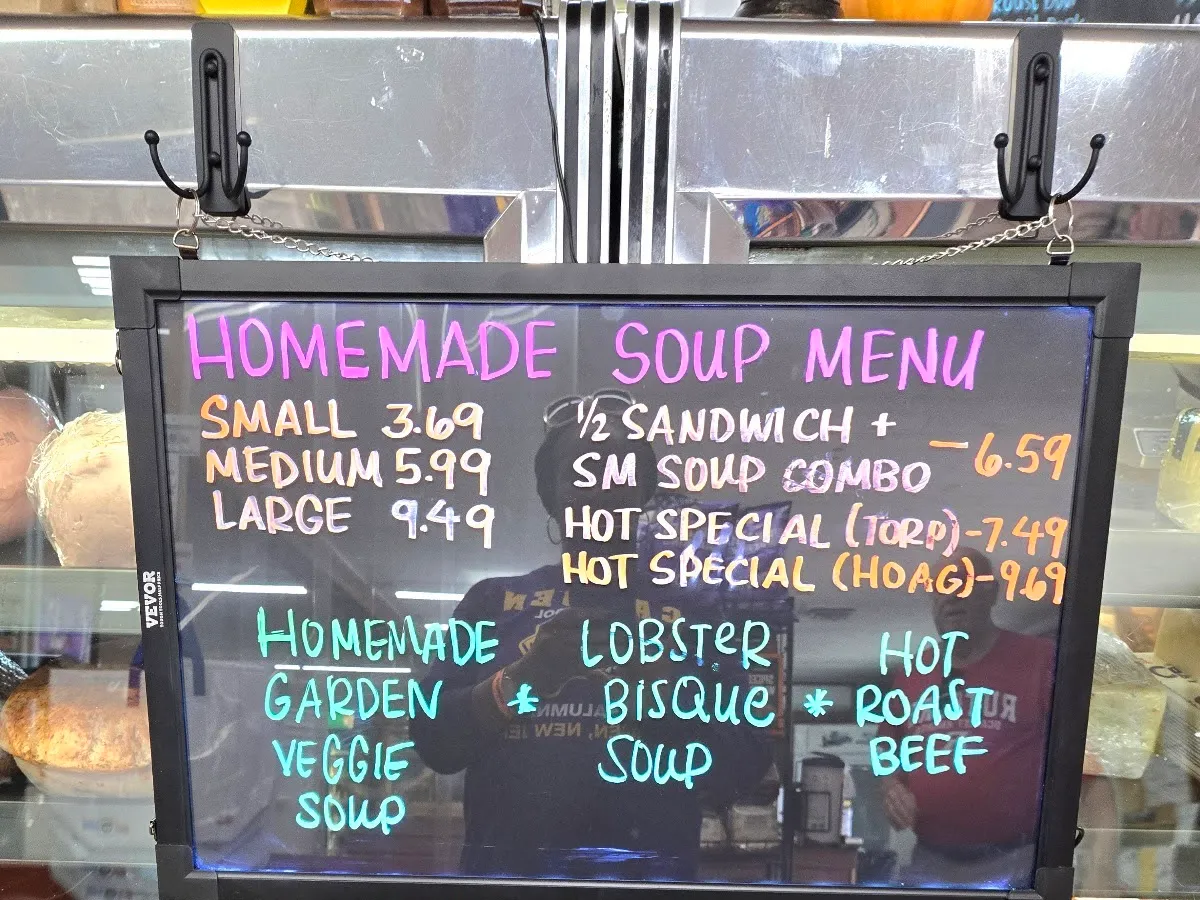 HOMEMADE SOUP MENU
SMALL 3.69
MEDIUM 5.99
LARGE 9.49
1/2 SANDWICH +
SM SOUP COMBO
—6.59
HOT SPECIAL (TORP)-7.49
HOT SPECIAL (HOAG)-9.69
HOMEMADE
GARDEN
VEGGIE
SOUP
*
LOBSTER
BISQUE
SOUP
*
HOT
ROAST
BEEF
VEVOR